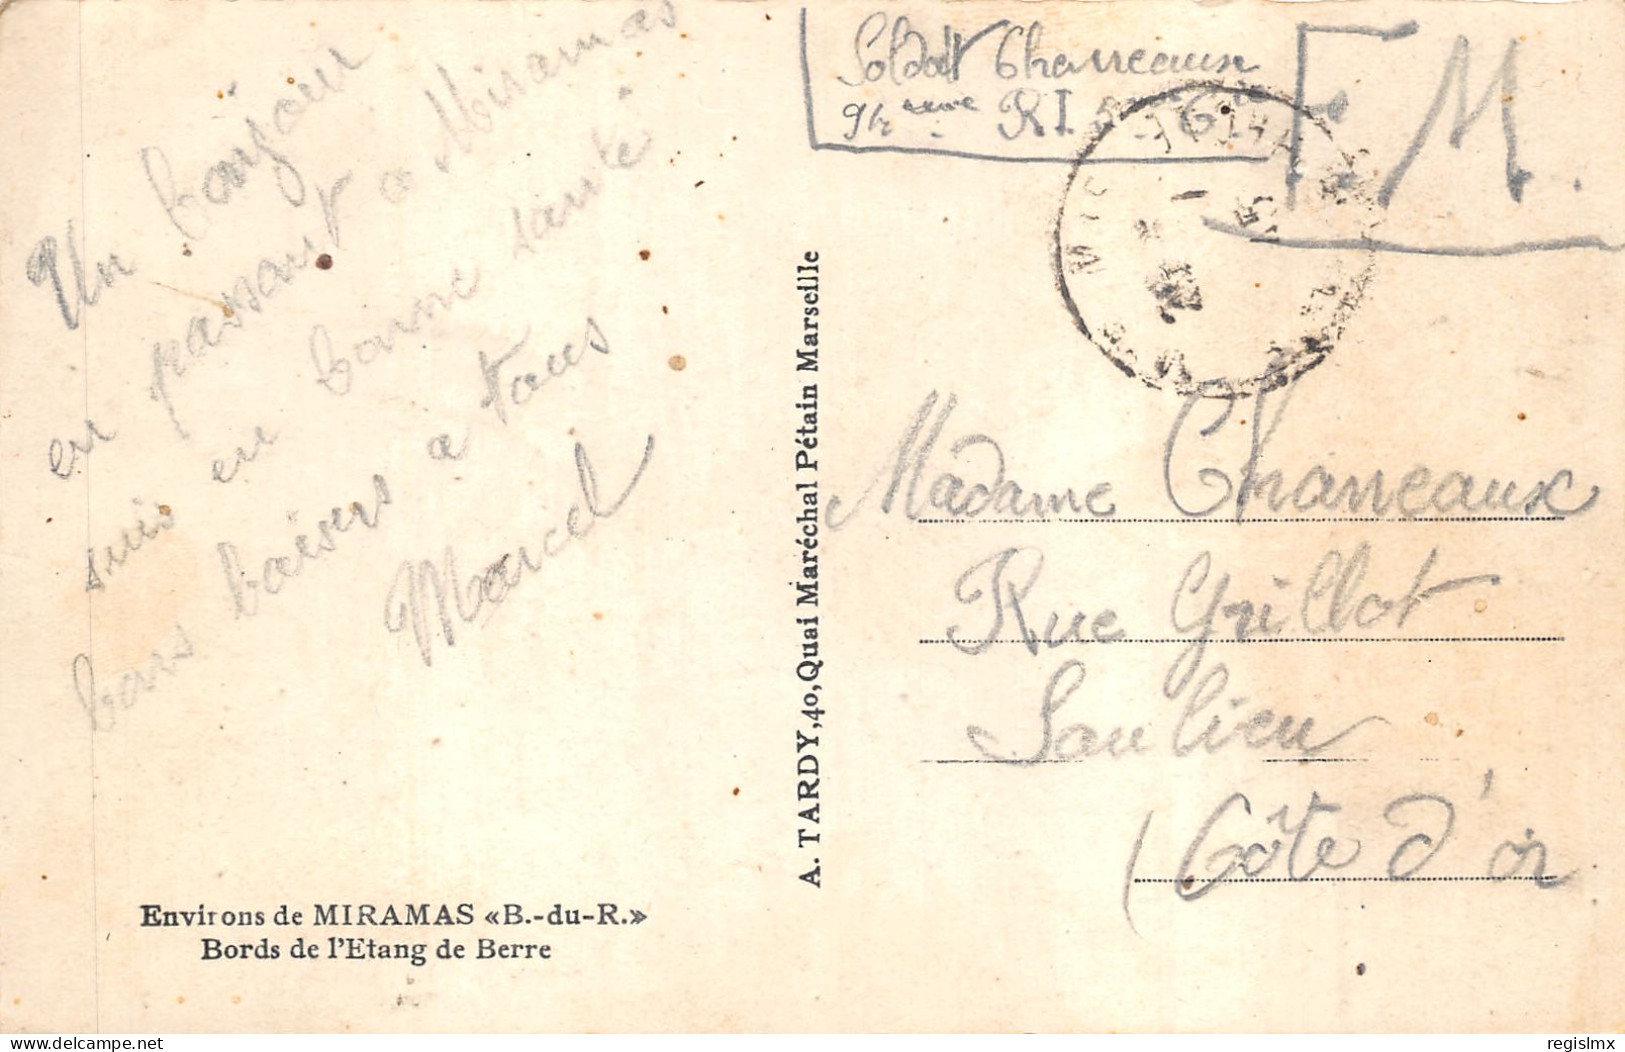 Un bonjour
en passant a Miramas
suis en bonne santé
bons baisers a tous
Marcel
Environs de MIRAMAS «B.-du-R.»
Bords de l'Etang de Berre
A. TARDY, 40, Quai Maréchal Pétain Marseille
Soldat Charreaux
RI
F.M.
Madame Charreaux
Rue Grillot
Saulieu
(Côte d'or
delcampe.net
regislmx